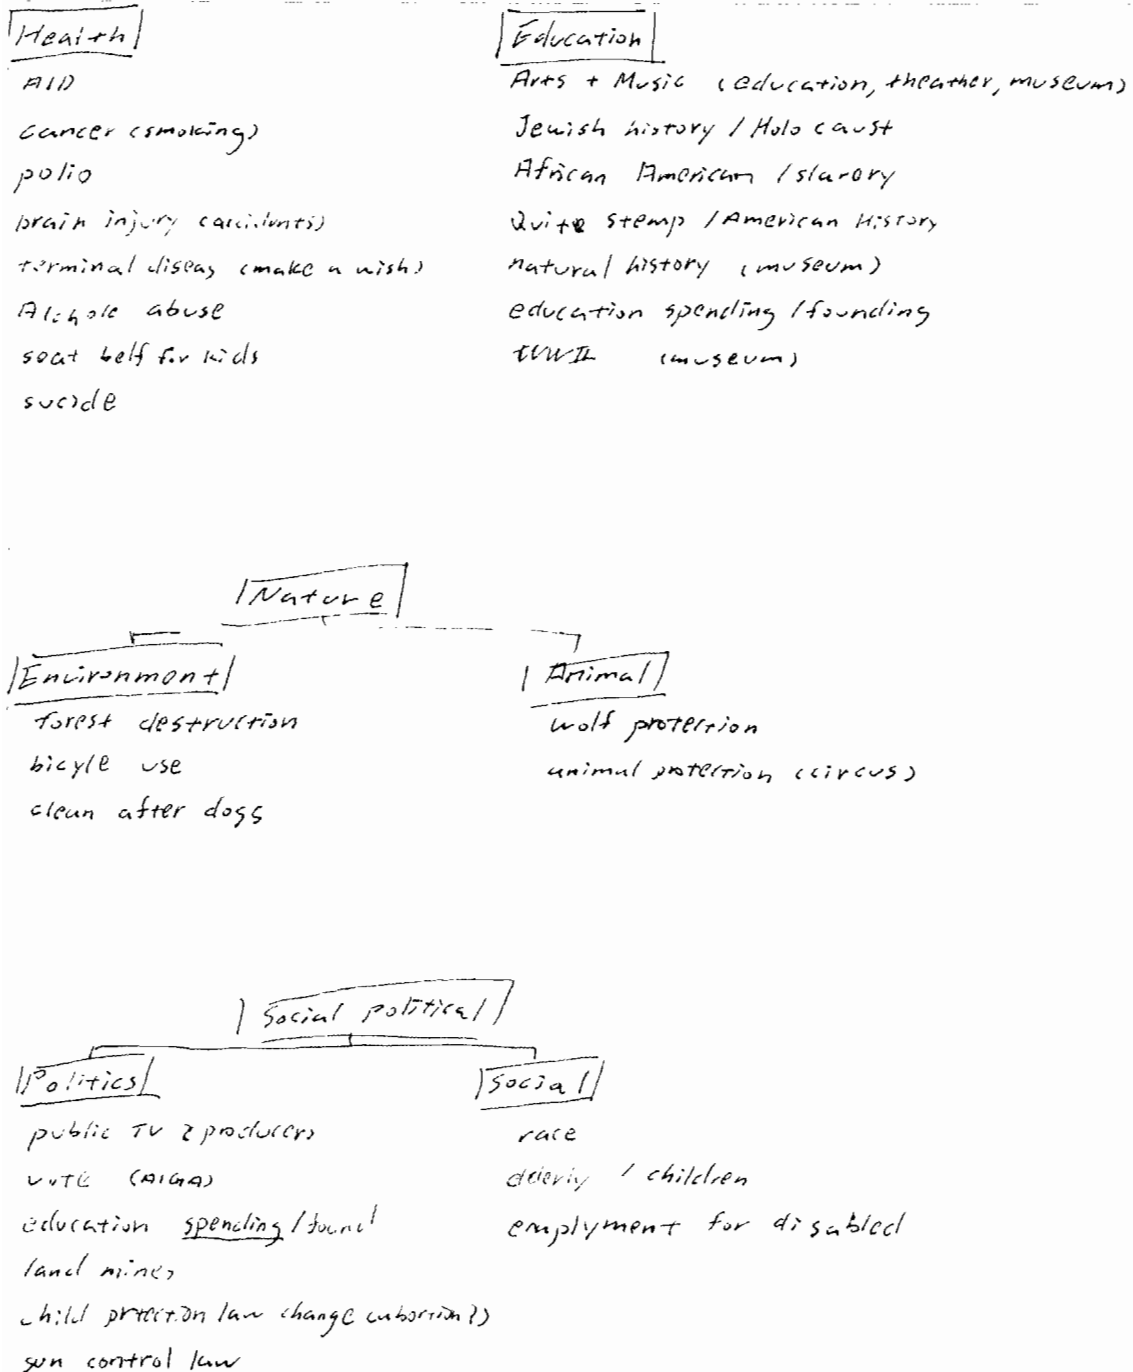 Health
AID
cancer (smoking)
polio
brain injury (accidents)
terminal diseas (make a wish)
Alchole abuse
seat belf for kids
sucide
Education
Arts + Music (education, theather, museum)
Jewish history / Holocaust
African American / slavery
Quite stemp / American History
natural history (museum)
education spending / founding
WWII (museum)
Nature
Environment
forest destruction
bicyle use
clean after dogs
Animal
wolf protection
animal protection (circus)
Social political
Politics
public TV & producers
VOTE (AIGA)
education spending / found
land mines
child prtection law change (abortion?)
gun control law
Social
race
elderly / children
emplyment for disabled